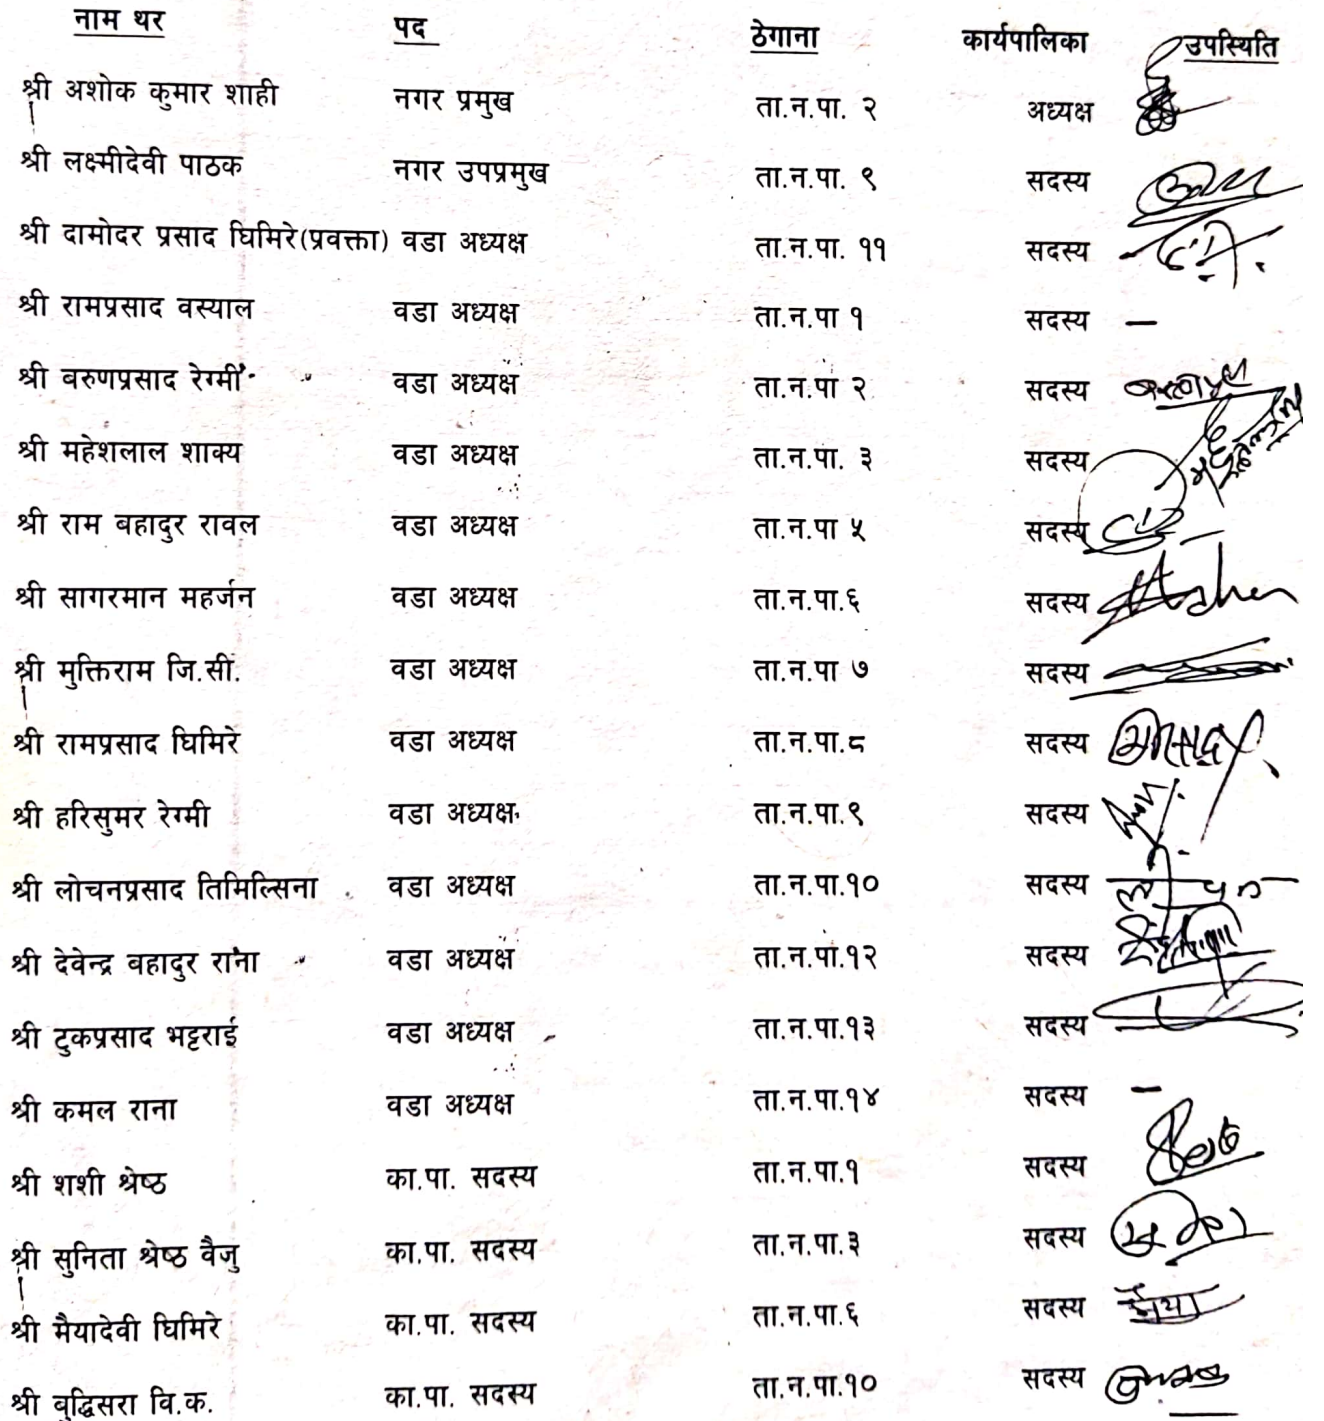 नाम थर पद ठेगाना कार्यपालिका उपस्थिति
श्री अशोक कुमार शाही नगर प्रमुख ता.न.पा. २ अध्यक्ष
श्री लक्ष्मीदेवी पाठक नगर उपप्रमुख ता.न.पा. ९ सदस्य
श्री दामोदर प्रसाद घिमिरे(प्रवक्ता) वडा अध्यक्ष ता.न.पा. ११ सदस्य
श्री रामप्रसाद वस्याल वडा अध्यक्ष ता.न.पा १ सदस्य –
श्री वरुणप्रसाद रेग्मी वडा अध्यक्ष ता.न.पा २ सदस्य
श्री महेशलाल शाक्य वडा अध्यक्ष ता.न.पा. ३ सदस्य
श्री राम बहादुर रावल वडा अध्यक्ष ता.न.पा ५ सदस्य
श्री सागरमान महर्जन वडा अध्यक्ष ता.न.पा.६ सदस्य
श्री मुक्तिराम जि.सी. वडा अध्यक्ष ता.न.पा ७ सदस्य
श्री रामप्रसाद घिमिरे वडा अध्यक्ष ता.न.पा.८ सदस्य
श्री हरिसुमर रेग्मी वडा अध्यक्ष ता.न.पा.९ सदस्य
श्री लोचनप्रसाद तिमिल्सिना वडा अध्यक्ष ता.न.पा.१० सदस्य
श्री देवेन्द्र वहादुर राना वडा अध्यक्ष ता.न.पा.१२ सदस्य
श्री टुकप्रसाद भट्टराई वडा अध्यक्ष ता.न.पा.१३ सदस्य
श्री कमल राना वडा अध्यक्ष ता.न.पा.१४ सदस्य –
श्री शशी श्रेष्ठ का.पा. सदस्य ता.न.पा.१ सदस्य
श्री सुनिता श्रेष्ठ वैजु का.पा. सदस्य ता.न.पा.३ सदस्य
श्री मैयादेवी घिमिरे का.पा. सदस्य ता.न.पा.६ सदस्य
श्री वुद्धिसरा वि.क. का.पा. सदस्य ता.न.पा.१० सदस्य